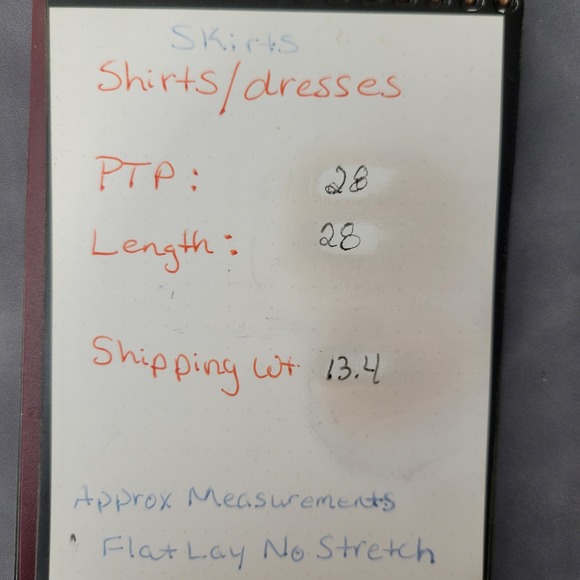 Skirts
Shirts/dresses
PTP: 28
Length: 28
Shipping Wt 13.4
Approx Measurements
Flat Lay No Stretch